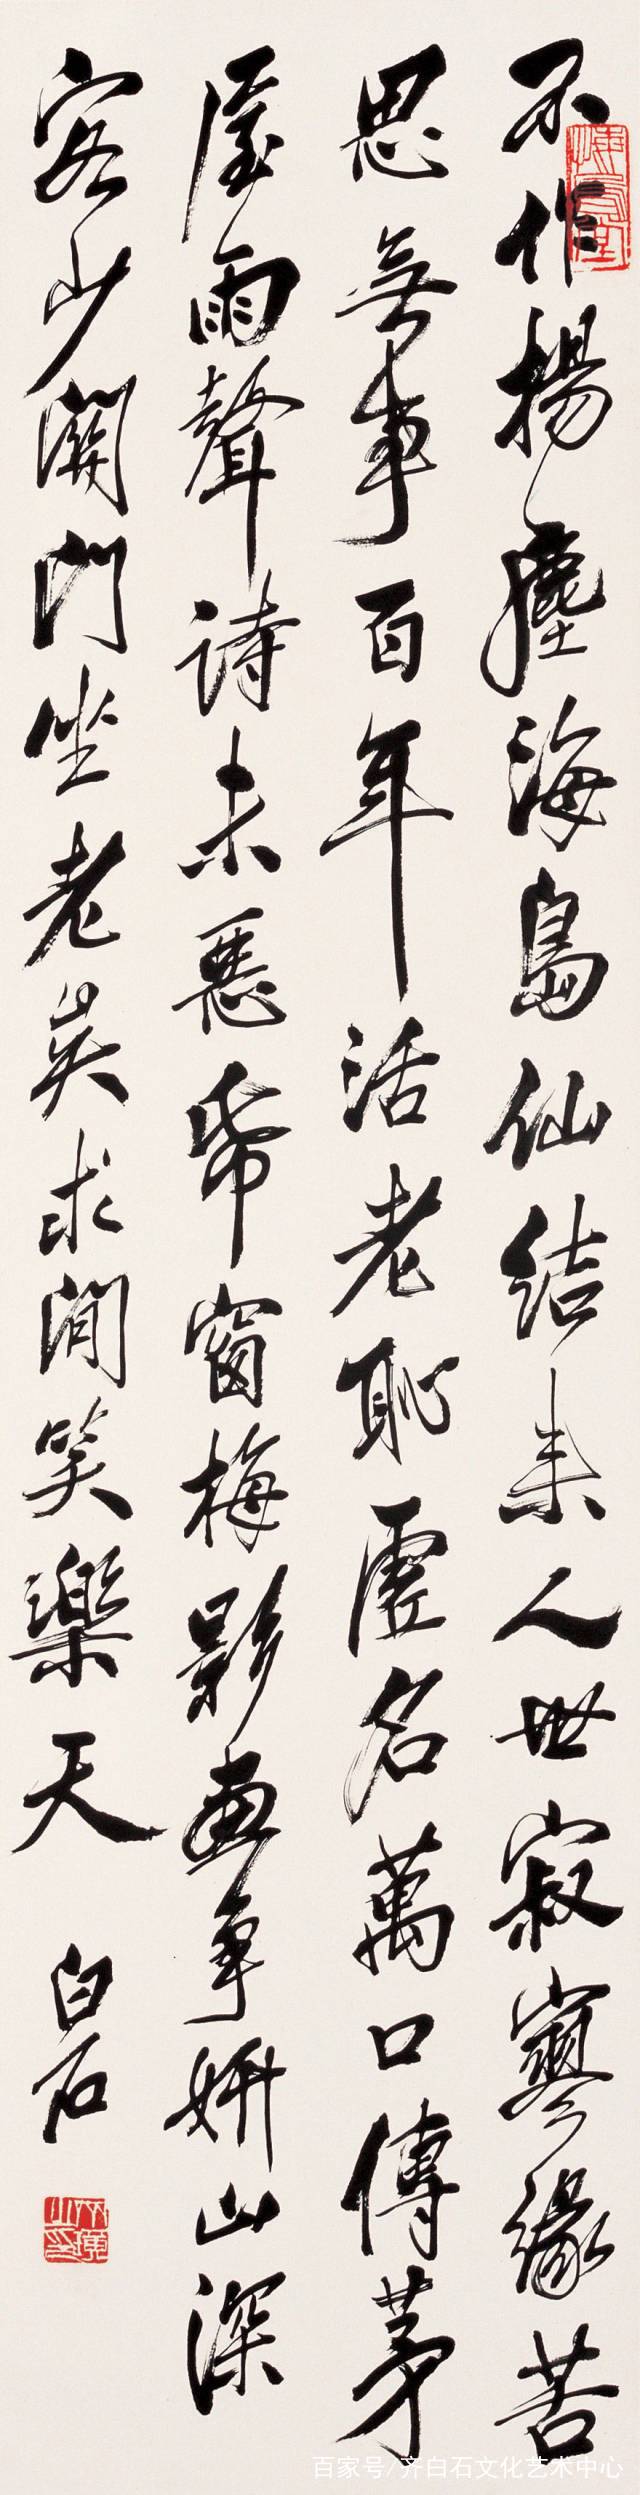 不作揚塵海島仙結來人世寂寥緣苦
思無事百年活老恥虛名萬口傳茅
屋雨聲詩未惡帋窗梅影畫爭妍山深
客少關門坐老矣求閒笑樂天
白石
百家号/齐白石文化艺术中心